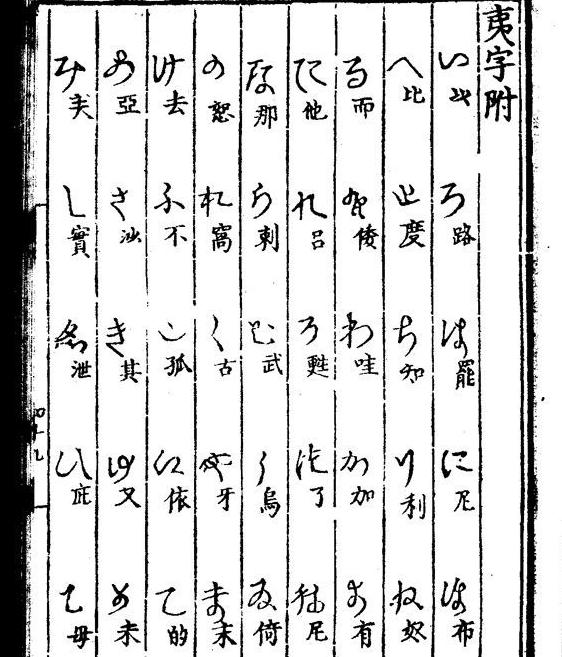 夷字附
い ろ路 は罷 に尼 ほ布
へ比 と度 ち知 り利 ぬ奴
る而 を倭 わ哇 か加 よ有
た他 れ呂 そ甦 つ了 ね尼
な那 ら剌 む武 う烏 ゐ倚
の怒 お窩 く古 や牙 ま末
け去 ふ不 こ孤 え依 て的
あ亞 さ沙 き其 ゆ又 め未
み し實 ゑ泄 ひ庇 も毋